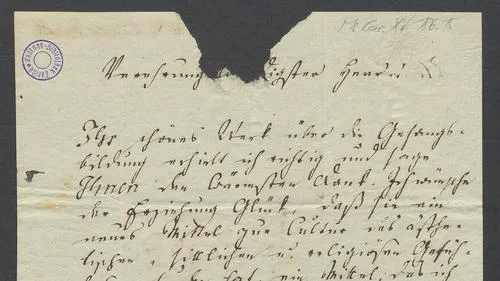 Ms Car. XV 186.
Kantons-Bibliothek Zürich
Verehrungs digster Herr
Ihr schönes Werk über die Gesangs-
bildung erhielt ich richtig und sage
Ihnen den wärmsten Dank. Ich wünsche
der Erziehung Glück, daß sie ein
neues Mittel zur Cultur des ästhe-
tischen, sittlichen u. religiösen Gefüh-
ein Mittel, das ich